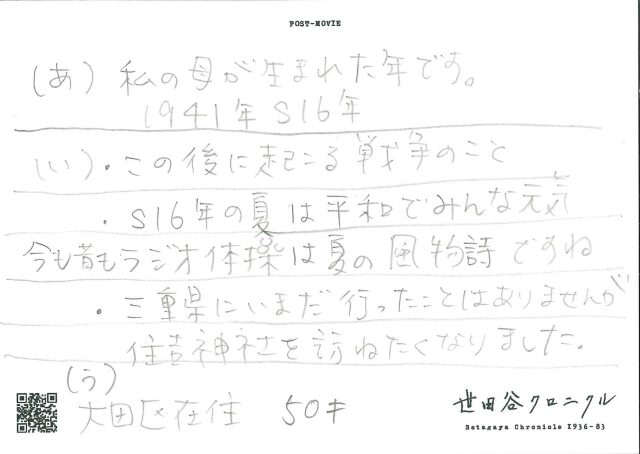 POST-MOVIE
(あ) 私の母が生まれた年です。
1941年 S16年
(い)・この後に起こる戦争のこと
・S16年の夏は平和でみんな元気
今も昔もラジオ体操は夏の風物詩ですね
・三重県にいまだ行ったことはありませんが
住吉神社を訪ねたくなりました。
(う)
大田区在住 50才
世田谷クロニクル
Setagaya Chronicle 1936-83